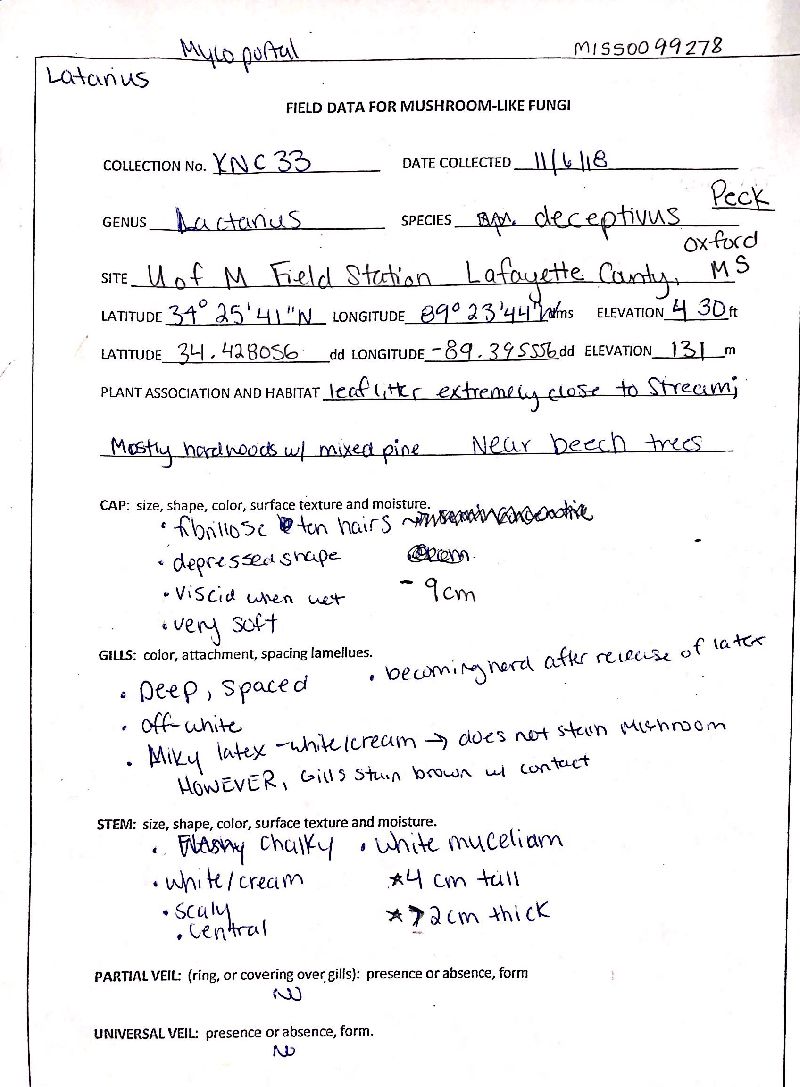 Myco portal MISS0099278
Latarius
FIELD DATA FOR MUSHROOM-LIKE FUNGI
COLLECTION No. YNC 33 DATE COLLECTED 11/6/18
Peck
GENUS Lactarius SPECIES deceptivus
Oxford
SITE U of M Field Station Lafayette County, MS
LATITUDE 34° 25' 41" N LONGITUDE 89° 23' 44" W dms ELEVATION 430 ft
LATITUDE 34.428056 dd LONGITUDE -89.395556 dd ELEVATION 131 m
PLANT ASSOCIATION AND HABITAT leaf litter extremely close to Stream;
Mostly hardwoods w/ mixed pine Near beech trees
CAP: size, shape, color, surface texture and moisture.
• fibrillose tan hairs
• depressed shape
• Viscid when wet - 9cm
• very soft
GILLS: color, attachment, spacing lamellues.
• Deep, spaced • becoming hard after release of latex
• off-white
• Milky latex - white/cream → does not stain mushroom
HOWEVER, Gills stain brown w/ contact
STEM: size, shape, color, surface texture and moisture.
• chalky • white muceliam
• white/cream *4 cm tall
• scaly *>2cm thick
• central
PARTIAL VEIL: (ring, or covering over gills): presence or absence, form
No
UNIVERSAL VEIL: presence or absence, form.
No